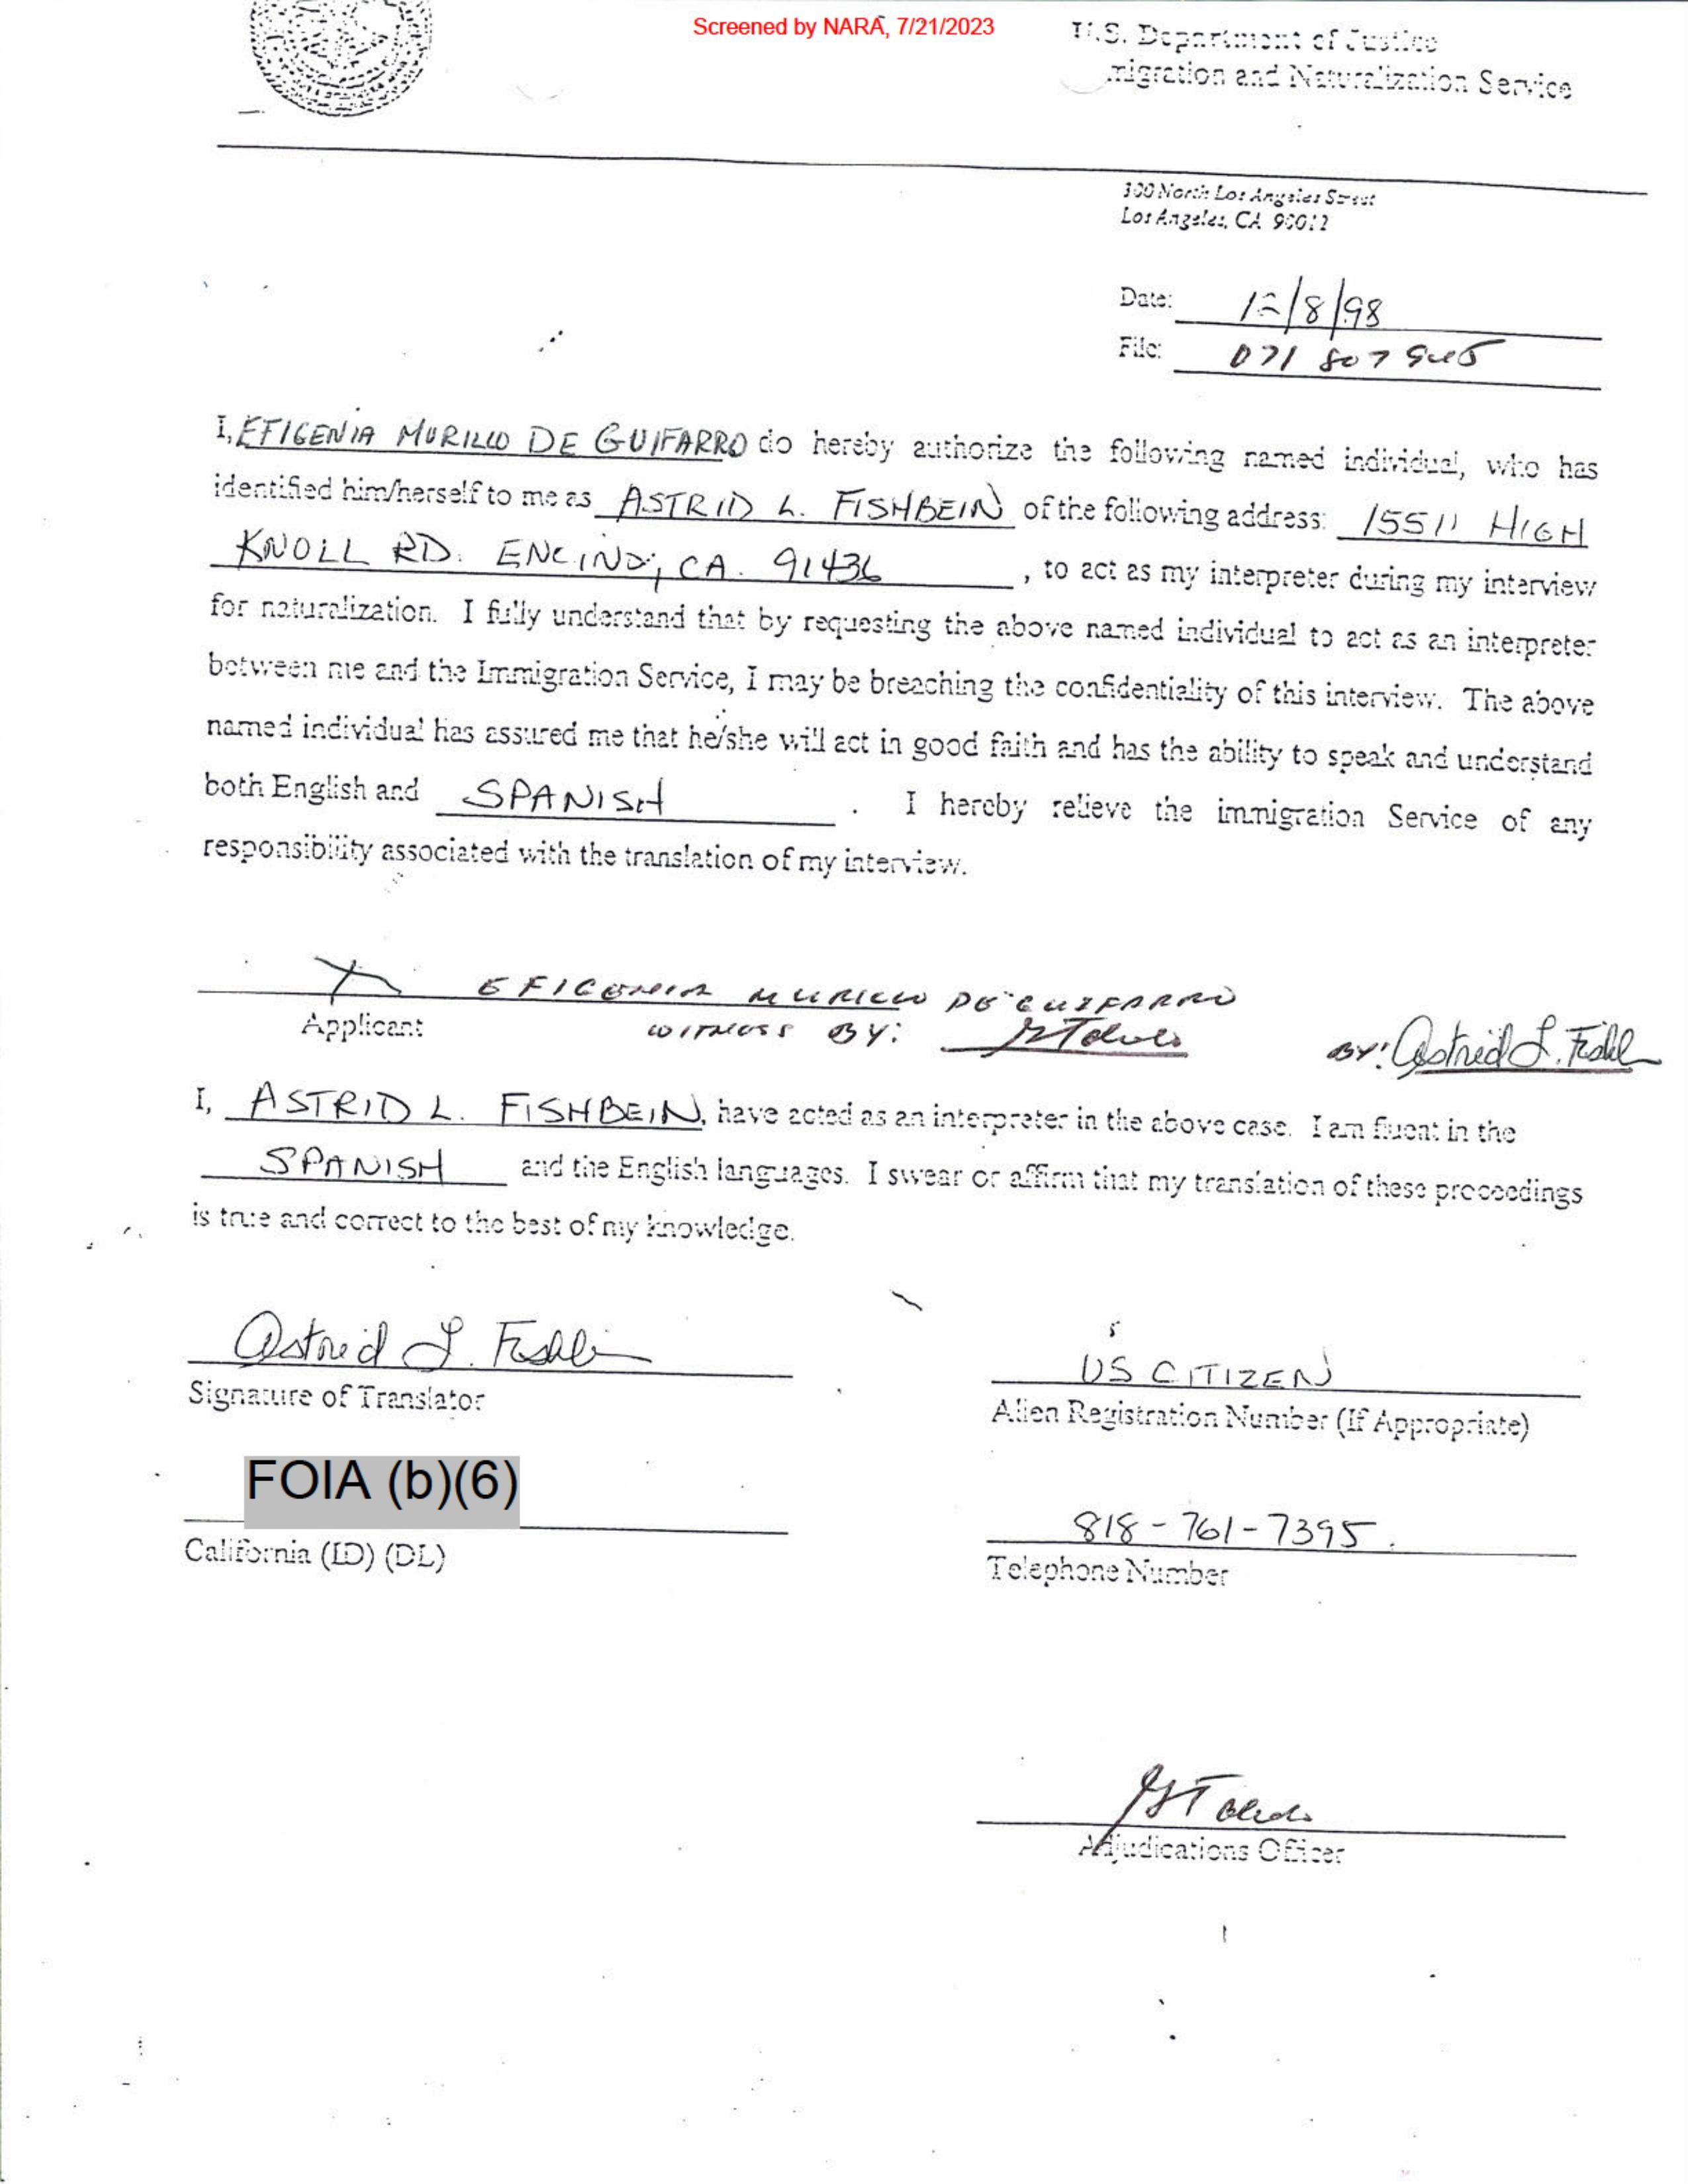 Screened by NARA, 7/21/2023
U.S. Department of Justice
migration and Naturalization Service
300 North Los Angeles Street
Los Angeles, CA 90012
Date: 12/8/98
File: 071 807 945
I, EFIGENIA MURILLO DE GUIFARRO do hereby authorize the following named individual, who has
identified him/herself to me as ASTRID L. FISHBEIN of the following address: 15511 HIGH
KNOLL RD. ENCINO, CA. 91436, to act as my interpreter during my interview
for naturalization. I fully understand that by requesting the above named individual to act as an interpreter
between me and the Immigration Service, I may be breaching the confidentiality of this interview. The above
named individual has assured me that he/she will act in good faith and has the ability to speak and understand
both English and SPANISH. I hereby relieve the immigration Service of any
responsibility associated with the translation of my interview.
X EFIGENIA MURILLO DE GUIFARRO
Applicant WITNESS BY: BY: Astrid L.
I, ASTRID L. FISHBEIN, have acted as an interpreter in the above case. I am fluent in the
SPANISH and the English languages. I swear or affirm that my translation of these proceedings
is true and correct to the best of my knowledge.
Astrid L.
Signature of Translator
US CITIZEN
Alien Registration Number (If Appropriate)
FOIA (b)(6)
California (ID) (DL)
818-761-7395.
Telephone Number
Adjudications Officer